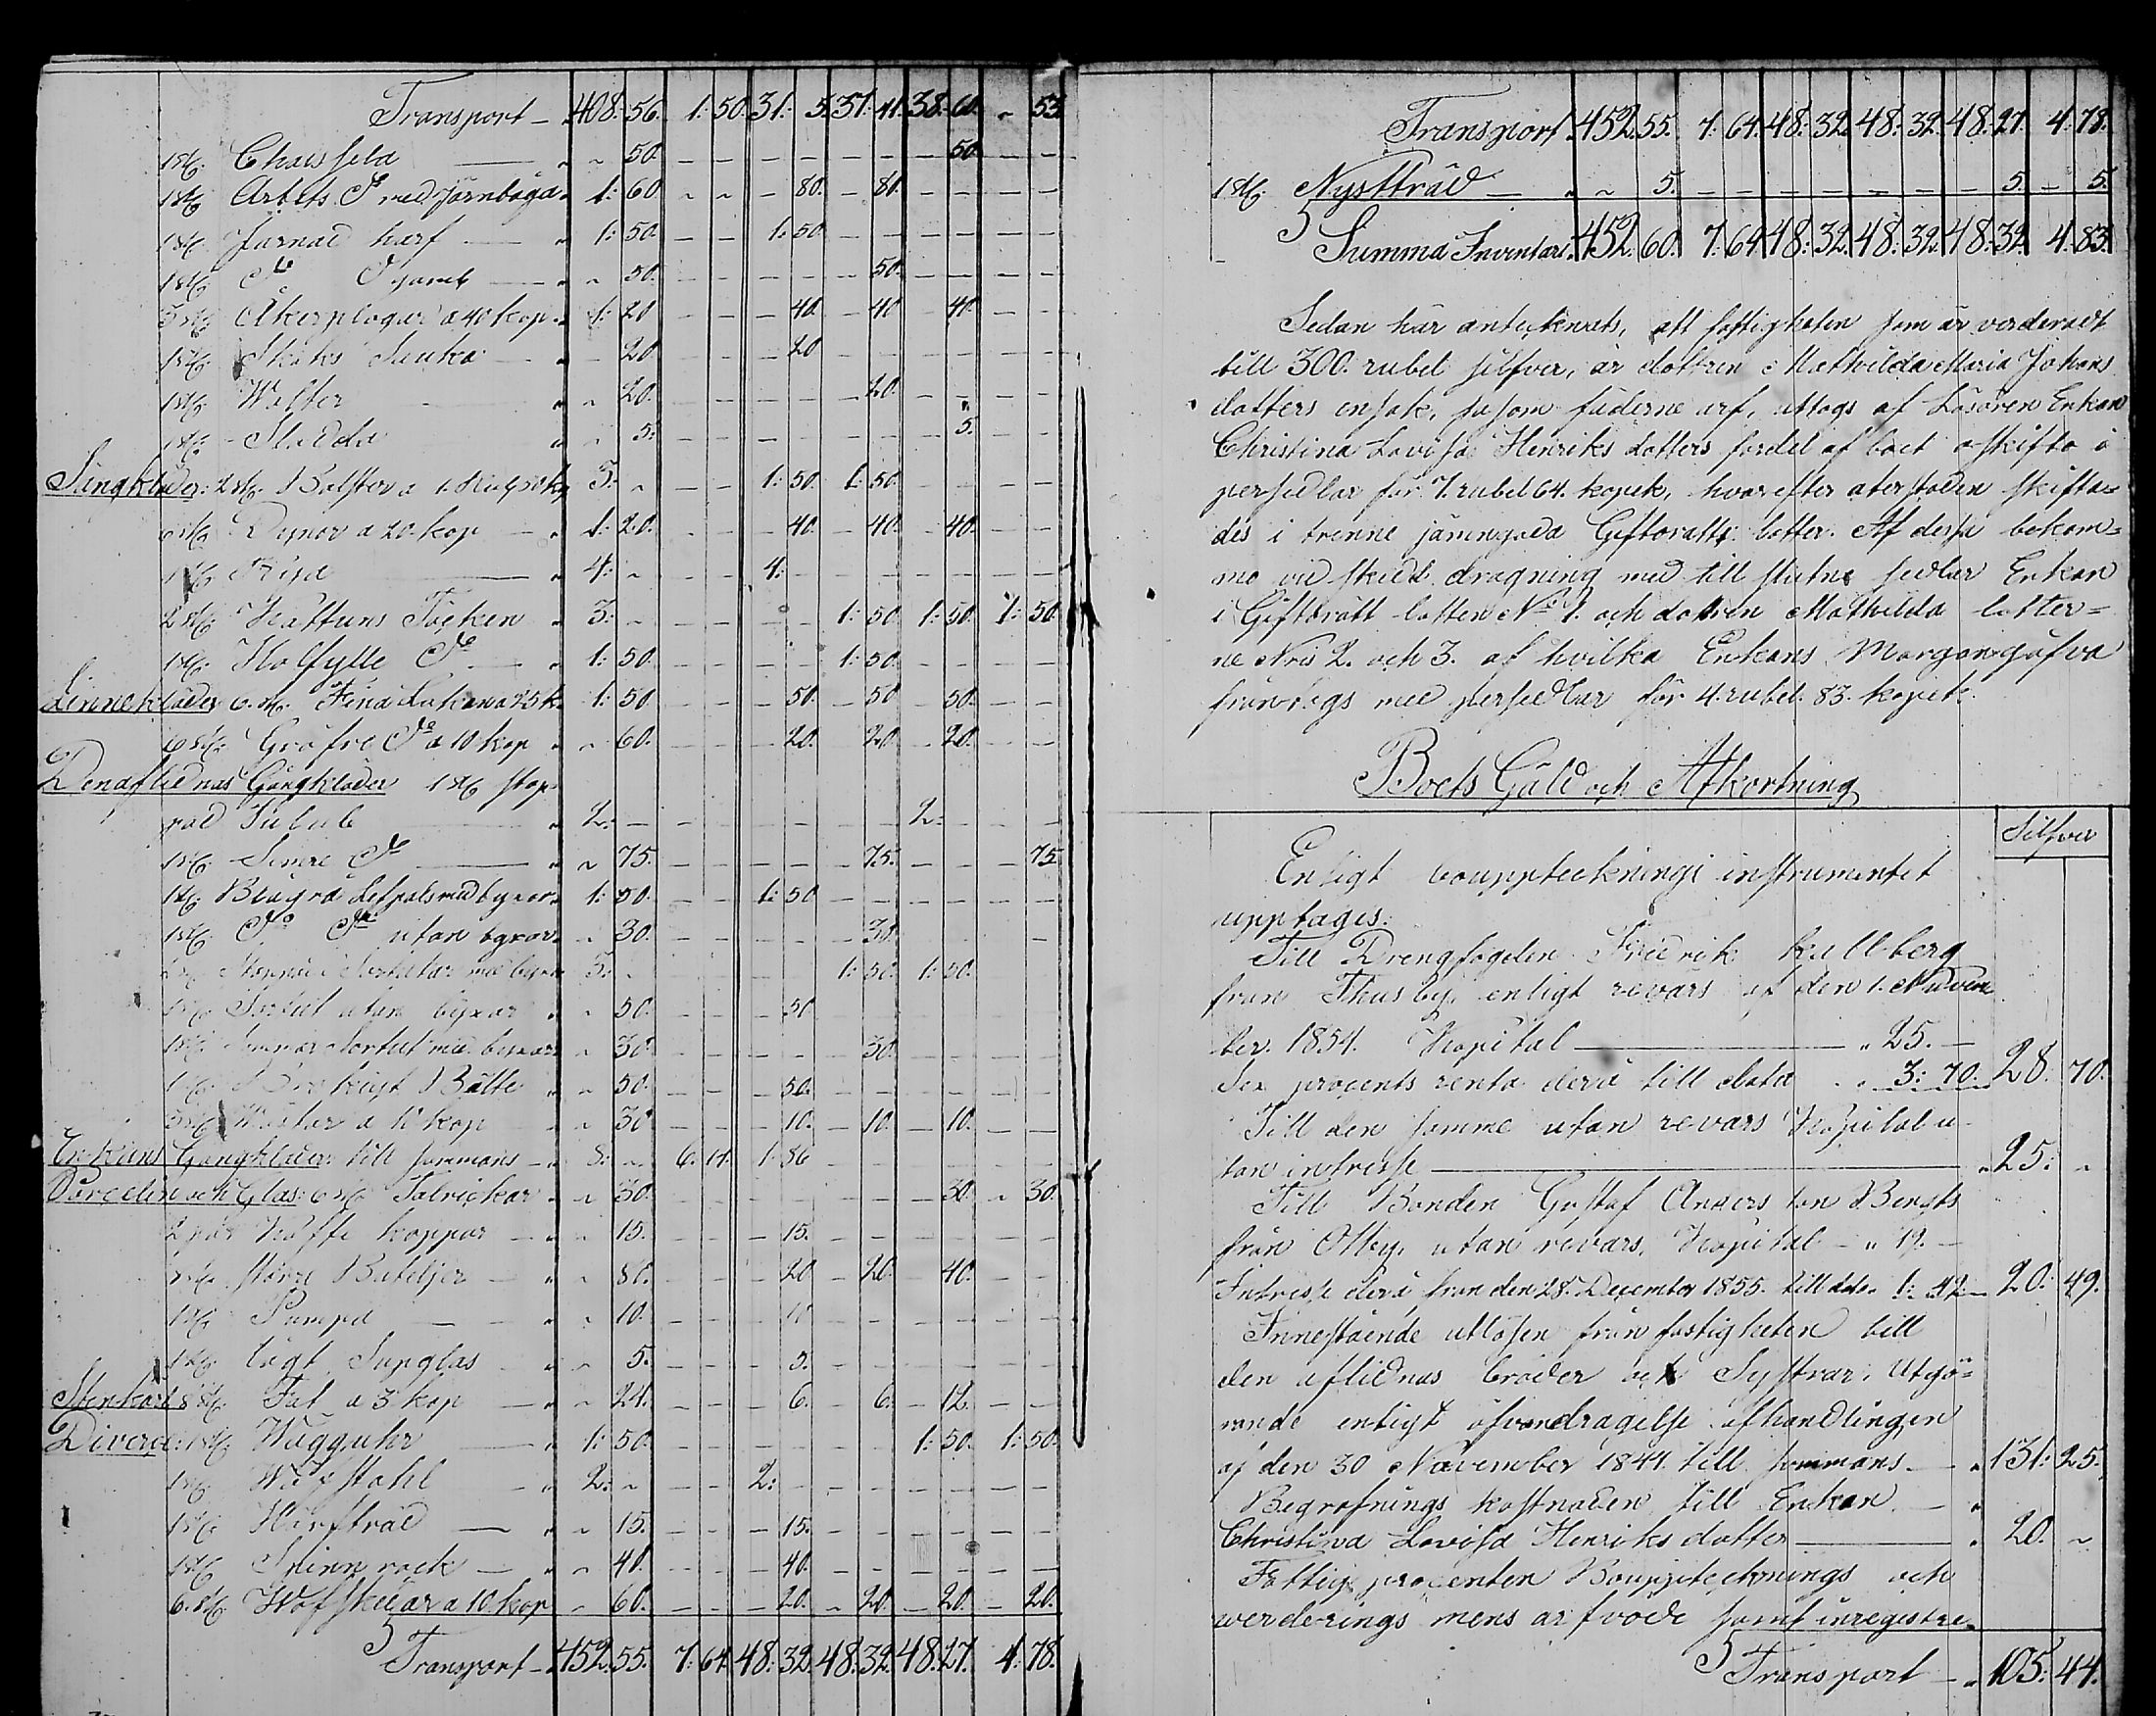 Transport 408: 56. 1: 50. 31: 5. 37: 41. 38: 60. " 53.
1 st. Chais sela " " 50. 50.
1 st. Arbets D:o med Järnbogar 1: 60 80. 80.
1 st. Järnad harf 1: 50. 1: 50
1 st. D:o D:o " 50. 50.
3 st. Åkerplogar a 40 kop. 1: 20 40. 40 40.
1 st. 20 20
1 st. Welter " 20. 20.
1 st. Sladda " 5. 5.
Sängkläder: 2 st. Bolster a 1. Rub. 50 k. 3: " 1: 50. 1: 50.
6 st. Dynor a 20. kop 1: 20. 40. 40. 40.
1 st. Rya 4: " 4:
2 st. Kattuns Täcken 3: 1: 50. 1: 50. 1: 50.
1 st. D:o 1: 50. 1: 50.
Linnekläder 6. st. Fina Lakan a 25 k. 1: 50. 50. 50 50.
6 st. Gröfre D:o a 10 kop " 60. 20. 20. 20.
Den aflidnas Gångkläder 1 st. stop-
pad Tulub 2: 2:
1 st. Sämre D:o " 75. 75. 75.
1 st. Blågrå med byxor 1: 50. 1: 50
1 st. D:o D:o utan byxor " 30. 30.
Sortutar med byxor 3: 1: 50. 1: 50.
1 st. Sortut utan byxor " 50. 50
1 st. Sommar Sortut med byxor " 30. 30.
1 st. Brokigt Bälte " 50. 50.
3 st. Westar a 10 kop " 30 10. 10. 10.
Enkans Gångkläder: till sammans 8: " 6. 14. 1: 86
Porcelin och Glas: 6 st. Talrickar " 30. 30. " 30.
2 par Kaffe koppar " 15. 15.
större Buteljer " 80. 20 20. 40.
1 st. Pumpa " 10. 10
1 st. lågt Supglas " 5. 5.
Stenkärl 8 st. Fat a 3 kop " 24. 6. 6. 12.
Diverse: 1 st. Wägguhr 1: 50. 1: 50. 1: 50.
1 st. Wäfstohl 2: " 2:
1 st. Härfträd " 15. 15.
1 st. Spinn rock " 40. 40.
6. st. Wäf skedar a 10. kop " 60. 20. 20. 20. 20.
Transport 452. 55. 7: 64. 48: 32. 48: 32. 48. 27. 4: 78.
Transport 452. 55. 7: 64. 48: 32. 48: 32. 48. 27. 4: 78.
1 st. Nystträd " " 5. 5. 5.
Summa Inventarie 452. 60. 7: 64. 48: 32. 48: 32. 48: 32. 4: 83.
Sedan här antecknats, att fastigheten som är värderadt
till 300. rubel silfver, är dottren Mathilda Maria Johans
dotters ensak, såsom fäderne arf, uttogs af Lösören Enkan
Christina Lovisa Henriks dotters fördel af boet oskifto i
persedlar för 7. rubel 64. kopek, hvarefter återstoden skifta-
des i trenne jämngoda Giftorätts lotter. Af dessa bekom-
mo vid skedd dragning med till slutne sedlar Enkan
i Giftorätt lotten N:o 1. och dottren Mathilda lotter-
ne N:ris 2. och 3. af hvilka Enkans Morgongåfva
frånlegs med persedlar för 4. rubel. 83. kopek.
Boets Gäld och Afkortning
Silfver
Enligt bouppteckningsinstrumentet
upptages:
Till Drengfogden Fredrik Kullberg
från Thusby, enligt revars af den 1. Novem
ber. 1854. Kapital " 25. -
Sex procents ränta derå till dato " 3: 70. 28. 70.
Till den samme utan revars Kapital u-
tan intresse " 25: "
Till Bonden Gustaf Anders son Bengts
från Ollby, utan revars, Kapital " 19. -
Intresse derå från den 28. December 1855. till dato 1: 49 20: 49.
Innestående utlösen från fastigheten till
den aflidnas bröder och Systrar, Utgö-
rande enligt öfverdragelse afhandlingen
af den 30 November 1841. till sammans " 131: 25.
Begrafnings kostnaden till Enkan
Christina Lovisa Henriks dotter " 20. "
Fattig procenten Boupptecknings och
werderings mens arfvode samt inregistre-
Transport " 105: 44.